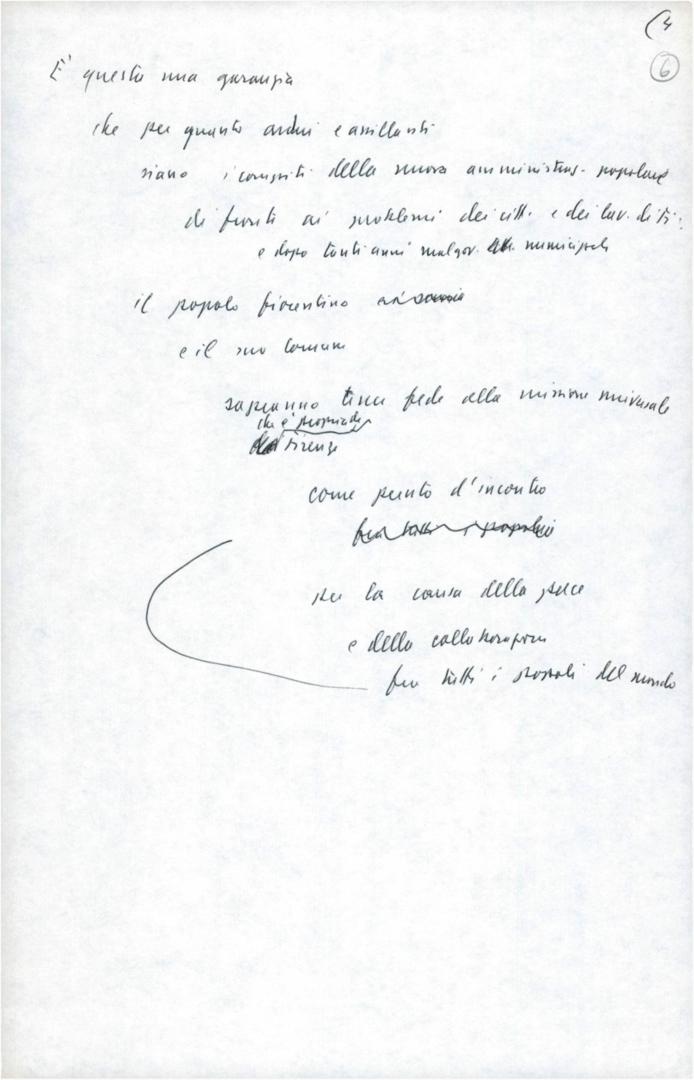 (4
6
E' questa una garanzia
che per quanto ardui e assillanti
siano i compiti della nuova amministraz. popolare
di fronti ai problemi dei citt. e dei lav. di Fi:
e dopo tanti anni malgov. municipale
il popolo fiorentino
e il suo Comune
sapranno tener fede alla missione universale
che è propria di
Firenze
come punto d'incontro
fra tutti i popoli
per la causa della pace
e della collaborazione
fra tutti i popoli del mondo